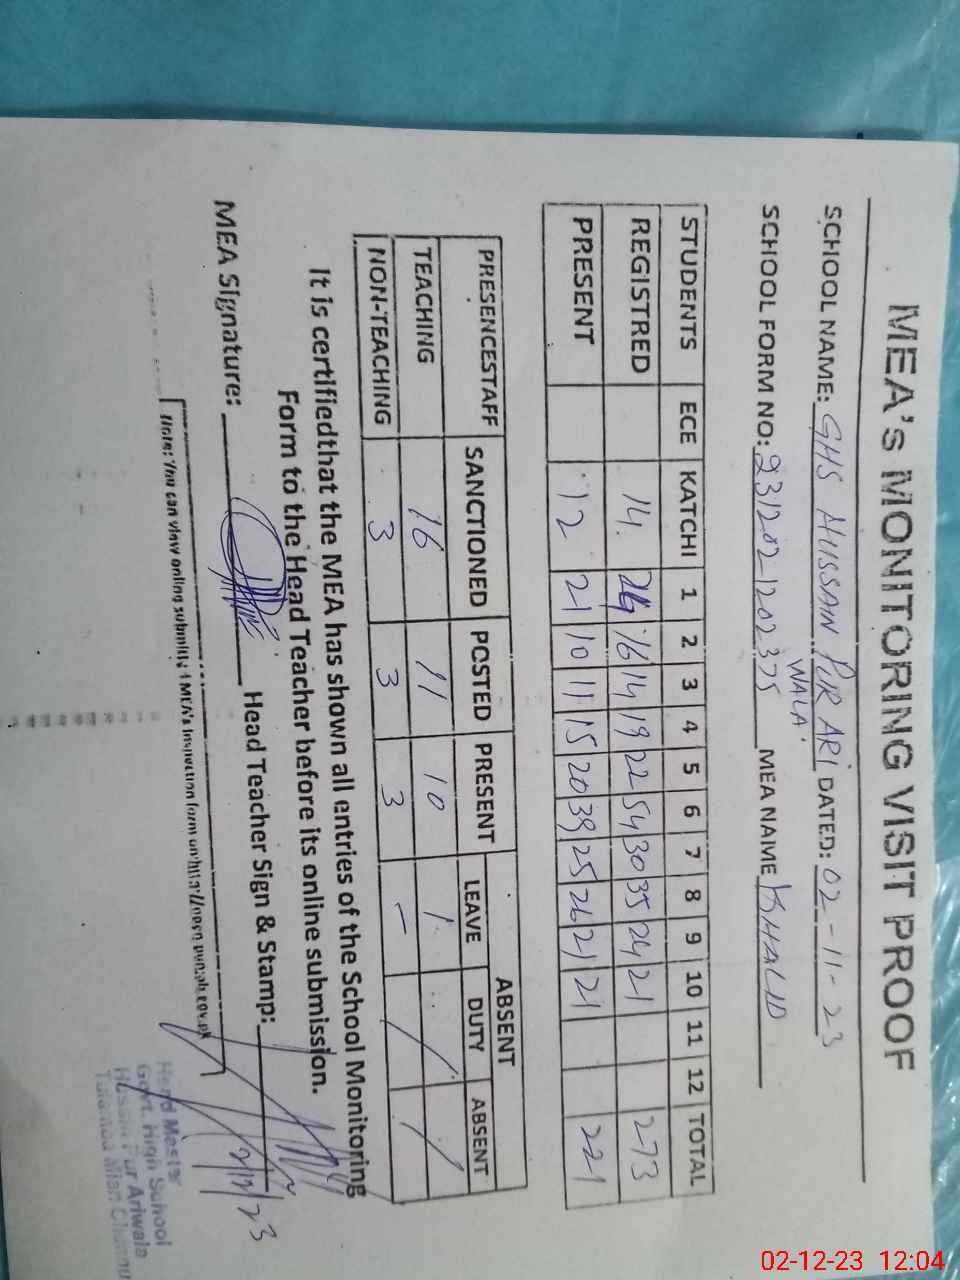 MEA's MONITORING VISIT PROOF
SCHOOL NAME: GHS HUSSAIN PUR ARI WALA DATED: 02-11-23
SCHOOL FORM NO: 231202-1202375 MEA NAME KHALID
STUDENTS ECE KATCHI 1 2 3 4 5 6 7 8 9 10 11 12 TOTAL
REGISTRED 14 24 16 14 19 22 54 30 35 24 21 273
PRESENT 12 21 10 11 15 20 39 25 26 21 21 221
PRESENCESTAFF SANCTIONED POSTED PRESENT ABSENT
LEAVE DUTY ABSENT
TEACHING 16 11 10 1
NON-TEACHING 3 3 3 -
It is certifiedthat the MEA has shown all entries of the School Monitoring
Form to the Head Teacher before its online submission.
MEA Signature: Head Teacher Sign & Stamp:
Note: You can view online submitted MEA's Inspection form on open.punjab.gov.pk
Head Master
Govt. High School
Hussain Pur Ariwala
Mian Channu
02-12-23 12:04